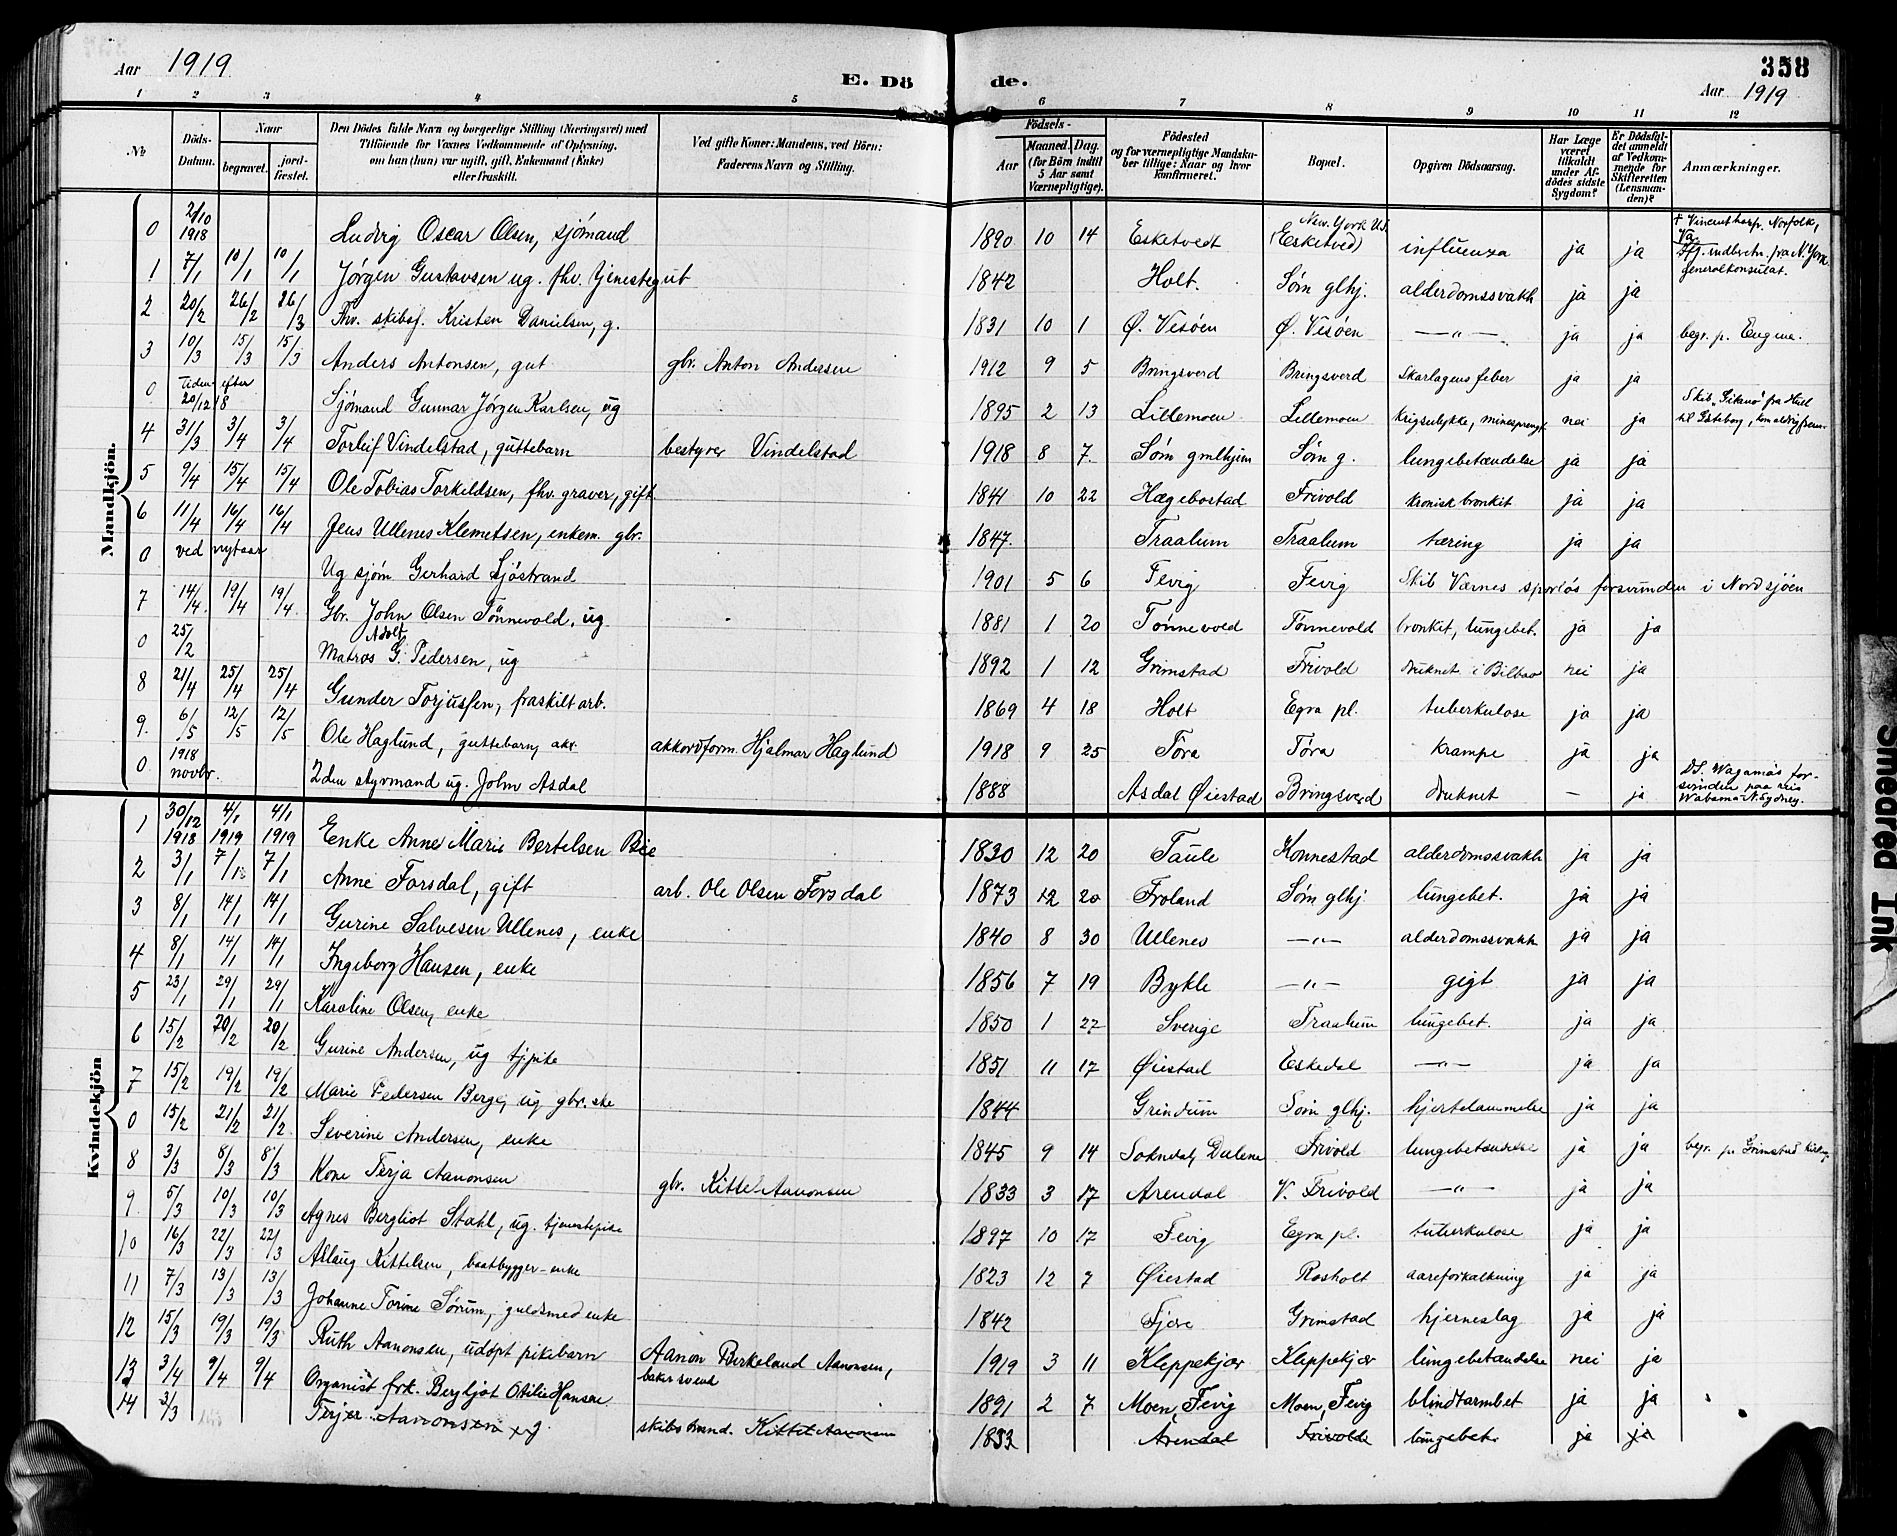 Aar 1919
E. Dö
de.
358
Aar 1919
1 2 3 4 5 6 7 8 9 10 11 12
No
Döds-Datum.
Naar
begravet.
jord-fæstet.
Den Dödes fulde Navn og borgerlige Stilling (Næringsvei) med
Tilföiende for Voxnes Vedkommende af Oplysning,
om han (hun) var ugift, gift, Enkemand (Enke)
eller fraskilt.
Ved gifte Koner: Mandens, ved Börn:
Faderens Navn og Stilling.
Födsels-
Aar
Maaned. Dag.
(for Börn indtil
5 Aar samt
Værnepligtige).
Födested
og for værnepligtige Mandskaber tillige: Naar og hvor
konfirmeret.
Bopæl.
Opgiven Dödsaarsag.
Har Læge
været
tilkaldt
under Afdödes sidste
Sygdom?
Er Dödsfaldet anmeldt
af Vedkommende for
Skifteretten
(Lensmanden)?
Anmærkninger.
Mandkjön.
0 2/10 1918 Ludvig Oscar Olsen, sjömand 1890 10 14 Esketvedt New York U.S. (Esketved) influenza ja ja † Vincent hosp. Norfolk, Va. Ifg. indberetn. fra N. York generalkonsulat.
1 7/1 10/1 10/1 Jørgen Gustavsen ug. fhv. tjenestegut 1842 Holt. Søm glhj. alderdomssvakh ja ja
2 20/2 26/2 26/3 Fhv. skibsf. Kristen Danielsen, g. 1831 10 1 Ø. Vesøen Ø. Vesøen —"— ja ja begr. p. Engene.
3 10/3 15/3 15/3 Anders Antonsen, gut gbr. Anton Andersen 1912 9 5 Bringsverd Bringsverd Skarlagensfeber ja ja
0 Tiden efter 20/12 18 Sjømand Gunnar Jørgen Karlsen, ug 1895 2 13 Lillemoen Lillemoen Krigsulykke, minesprengt nei ja Skib "Gitano" fra Hull til Gøteborg, kom aldrig frem.
4 31/3 3/4 3/4 Torleif Vindelstad, guttebarn bestyrer Vindelstad 1918 8 7 Søm gmlhjem Søm g. lungebetændelse ja ja
5 9/4 15/4 15/4 Ole Tobias Torkildsen, fhv. graver, gift 1841 10 22 Hægebostad Frivold kronisk bronkit ja ja
6 11/4 16/4 16/4 Jens Ullenes Klemetsen, enkem. gbr. 1847 Traalum Traalum tæring ja ja
0 ved nytaar Ug sjøm. Gerhard Sjöstrand 1901 5 6 Fevig Fevig Skib Værnes sporløs forsvunden i Nordsjøen
7 14/4 19/4 19/4 Gbr. John Olsen Tønnevold, ug 1881 1 20 Tønnevold Tønnevold bronkit, lungebet. ja ja
0 25/2 Matros G. Adolf Pedersen, ug 1892 1 12 Grimstad Frivold druknet i Bilbao nei ja
8 21/4 25/4 25/4 Gunder Torjussen, fraskilt arb. 1869 4 18 Holt Egra pl. tuberkulose ja ja
9. 6/5 12/5 12/5 Ole Haglund, guttebarn, akk. akkordform. Hjalmar Haglund 1918 9 25 Tóra Tóra Krampe ja ja
0 1918 novbr. 2den styrmand ug. John Asdal 1888 Asdal Øiestad Bringsverd druknet — ja DS. Wagamas forsvunden paa reis Wabana N. Sydney.
Kvindekjön
1 30/12 1918 4/1 1919 4/1 1919 Enke Anne Marie Bertelsen Bie 1830 12 20 Taule Konnestad alderdomssvakh ja ja
2 3/1 7/1 7/1 Anne Forsdal, gift arb. Ole Olsen Forsdal 1873 12 20 Froland Søm glhj lungebet. ja ja
3 8/1 14/1 14/1 Gurine Salvesen Ullenes, enke 1840 8 30 Ullenes —"— alderdomssvakh ja ja
4 8/1 14/1 14/1 Ingeborg Hansen, enke 1856 7 19 Bykle —"— gigt ja ja
5 23/1 29/1 29/1 Karoline Olsen, enke 1850 1 27 Sverige Traalum lungebet. ja ja
6 15/2 20/2 20/2 Gurine Andersen, ug tjpike 1851 11 17 Øiestad Eskedal —"— ja ja
7 15/2 19/2 19/2 Marie Pedersen Berge, ug gbr.ske 1844 Grindum Søm glhj. hjertelammelse ja ja
0 15/2 21/2 21/2 Severine Andersen, enke 1845 9 14 Sokndal, Dalene Frivold lungebetændelse ja ja begr. p. Grimstad kirkeg.
8 3/3 8/3 8/3 Kone Terja Aanonsen gbr. Kittel Aanonsen 1833 3 17 Arendal V. Frivold —"— ja ja
9 5/3 10/3 10/3 Agnes Bergliot Stahl, ug. tjenestepike 1897 10 17 Fevig Egra pl. tuberkulose ja ja
10 16/3 22/3 22/3 Aslaug Kittelsen, baatbygger-enke 1823 12 7 Øiestad Rosholt aareforkalkning ja ja
11 7/3 13/3 13/3 Johanne Torine Sørum, guldsmedenke 1842 Fjære Grimstad hjerneslag ja ja
12 15/3 19/3 19/3 Ruth Aanonsen, udøpt pikebarn Aanon Birkeland Aanonsen, bakersvend 1919 3 11 Kleppekjær Kleppekjær lungebetændelse nei ja
13 3/4 9/4 9/4 Organist frk. Bergljot Otilie Hansen 1891 2 7 Moen, Fevig Moen, Fevig blindtarmbet ja ja
14 3/3 Terjer Aanonsen, g. skibstømd. Kittel Aanonsen 1833 Arendal Frivold lungebet. ja ja
Smeared Ink